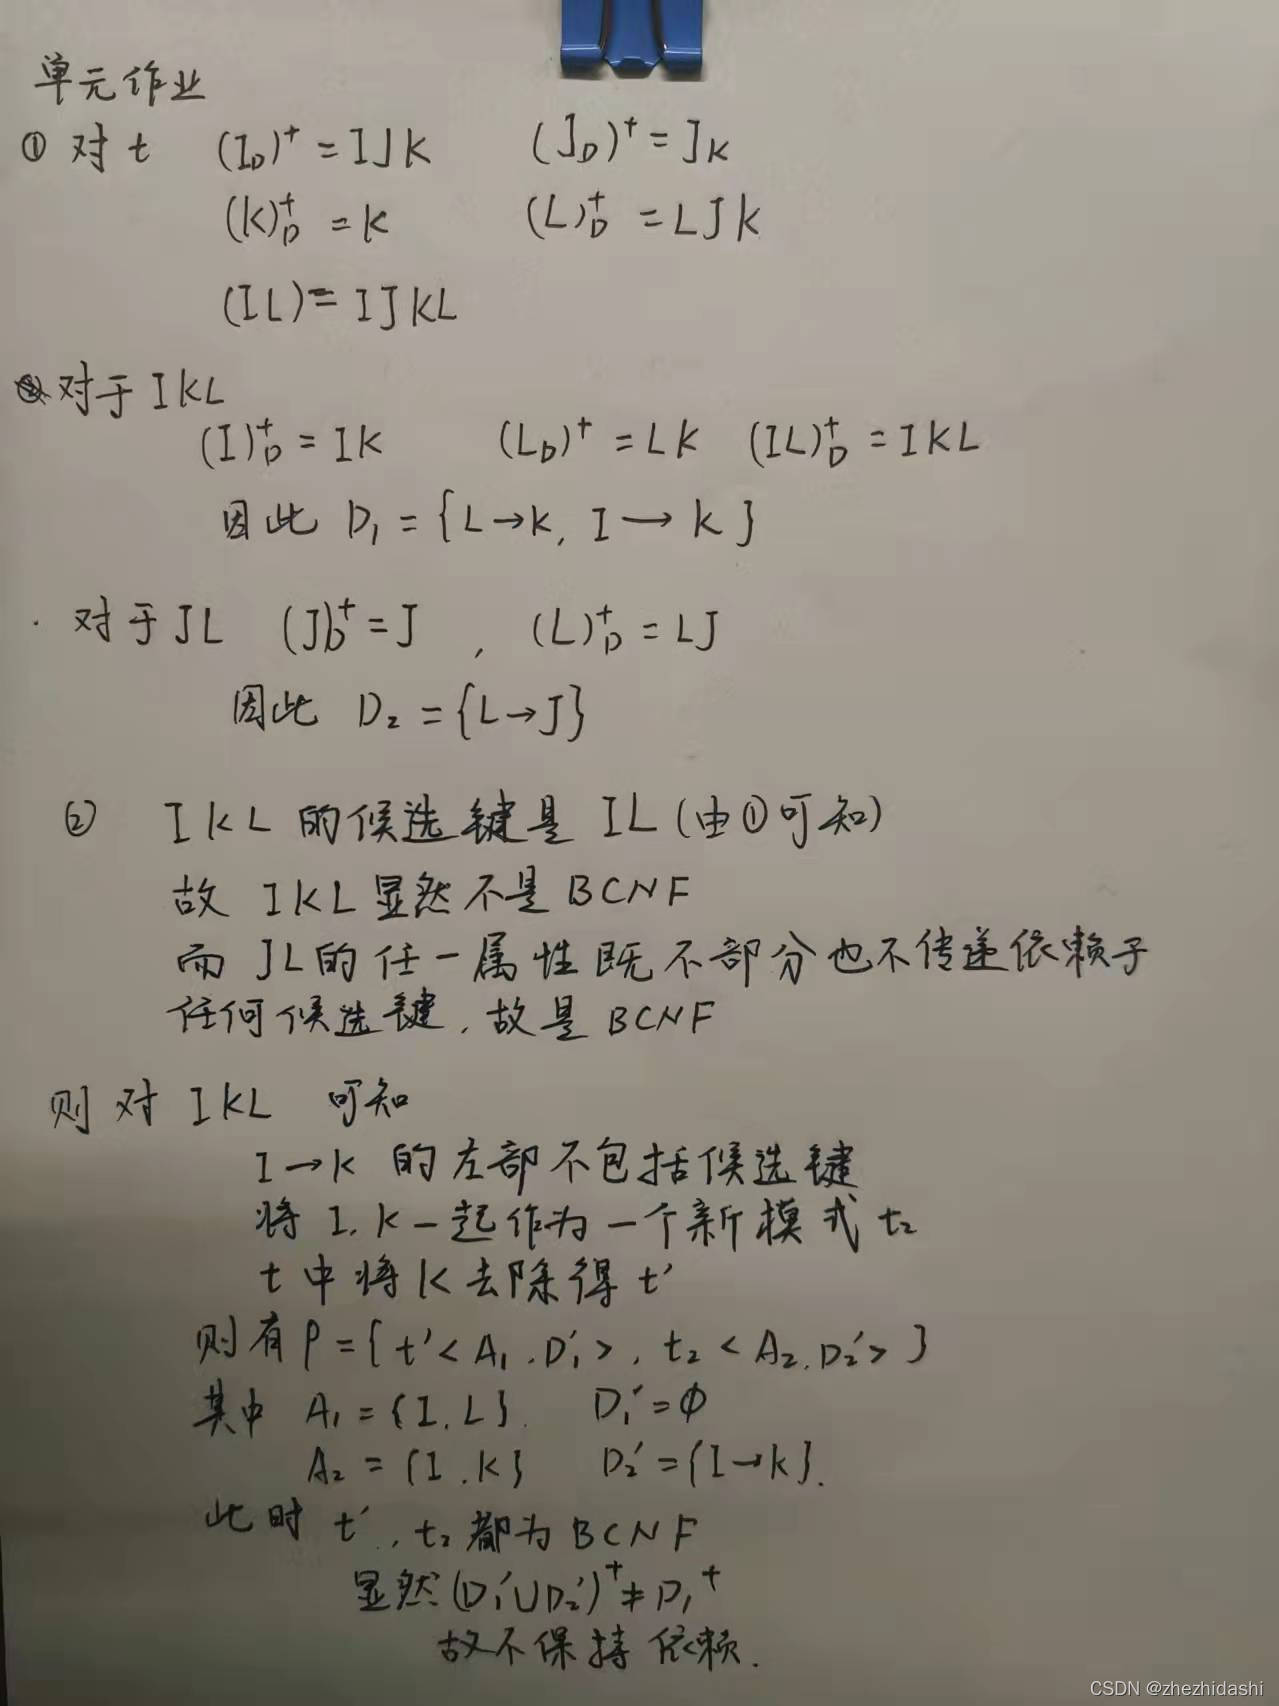 单元作业
① 对 t (I_D)⁺ = IJK (J_D)⁺ = JK
(K)_D⁺ = K (L)_D⁺ = LJK
(IL) = IJKL
对于 IKL
(I)_D⁺ = IK (L_D)⁺ = LK (IL)_D⁺ = IKL
因此 D₁ = {L→K, I→K}
· 对于 JL (J)_D⁺ = J , (L)_D⁺ = LJ
因此 D₂ = {L→J}
② IKL 的候选键是 IL (由①可知)
故 IKL 显然不是 BCNF
而 JL 的任一属性既不部分也不传递依赖于
任何候选键, 故是 BCNF
则对 IKL 可知
I→K 的左部不包括候选键
将 I, K 一起作为一个新模式 t₂
t 中将 K 去除得 t'
则有 ρ = { t'< A₁, D₁'>, t₂ < A₂, D₂'> }
其中 A₁ = {I, L}. D₁' = ϕ
A₂ = {I, K} D₂' = {I→K}.
此时 t', t₂ 都为 BCNF
显然 (D₁'∪D₂')⁺ ≠ D₁⁺
故不保持依赖.
CSDN @zhezhidashi